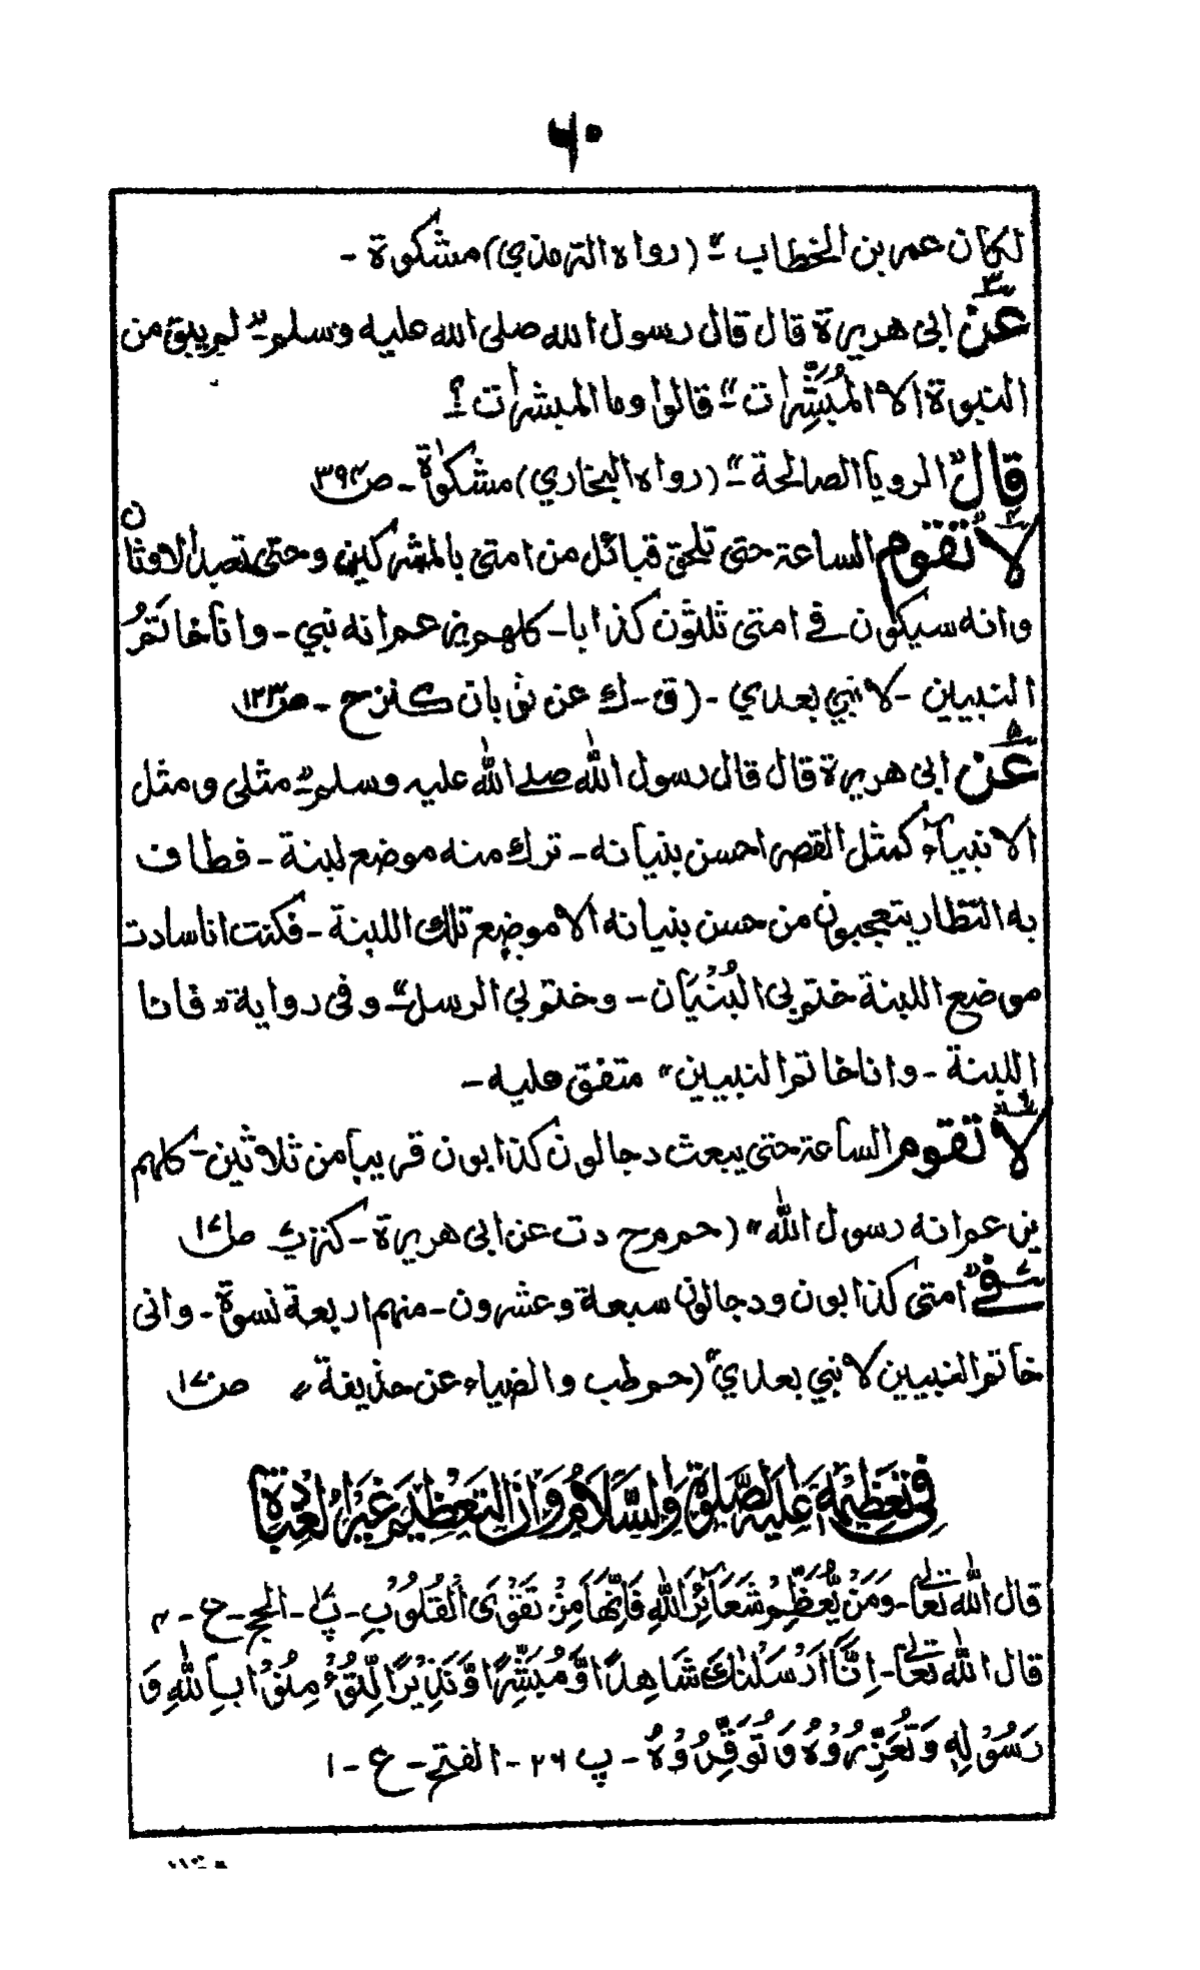 ۶۰
لکان عمر بن الخطاب" (رواه الترمذي) مشکوة -
۳ عن ابی هریرة قال قال رسول الله صلی الله علیه وسلم" لم یبق من
النبوة الا المُبَشِّرات" قالوا وما المبشرات؟
قال" الرویا الصالحة" (رواه البخاري) مشکوٰة - ص۳۹۴
۴ لا تقوم الساعة حتی تلحق قبائل من امتی بالمشرکین وحتی تعبد الاوثان
وانه سیکون فی امتی ثلثون کذابا - کلهم یزعم انه نبي - وانا خاتمُ
النبیین - لا نبي بعدي - (ق - ك عن ثوبان کنز ح - ص۱۲۳
۵ عن ابی هریرة قال قال رسول الله صلے الله علیه وسلم" مثلی ومثل
الانبیآء کمثل القصر احسن بنیانه - ترك منه موضع لبنة - فطاف
به النظار یتعجبون من حسن بنیانه الا موضع تلك اللبنة - فکنت انا سادت
موضع اللبنة ختم بی البُنْیَان - وختم بي الرسل" وفی روایة" فانا
اللبنة - وانا خاتم النبیین" متفق علیه -
۶ لا تقوم الساعة حتی یبعث دجالون کذابون قریبا من ثلاثین - کلهم
یزعم انه رسول الله" (حم م ح د ت عن ابی هریرة - کنز ج۷ ص۱۷
۷ فی" امتی کذابون ودجالون سبعة وعشرون - منهم اربعة نسوة - وانی
خاتم النبیین لا نبي بعدي" (حم طب والضیاء عن حذیفة" ص۱۷۰
فِی تَعْظِیْمِهٖ عَلَیْهِ الصَّلٰوةُ وَالسَّلَامُ وَاَنَّ التَّعْظِیْمَ غَیْرُ الْعِبَادَةِ
قال الله تعالٰی - وَمَنْ یُّعَظِّمْ شَعَآئِرَ اللّٰهِ فَاِنَّهَا مِنْ تَقْوَی الْقُلُوْبِ - پ۱۷ - الحج - ع - ۴
قال الله تعالٰی - اِنَّا اَرْسَلْنٰكَ شَاهِدًا وَّمُبَشِّرًا وَّنَذِیْرًا لِّتُؤْمِنُوْا بِاللّٰهِ وَ
رَسُوْلِهٖ وَتُعَزِّرُوْهُ وَتُوَقِّرُوْهُ - پ ۲۶ - الفتح - ع - ۱